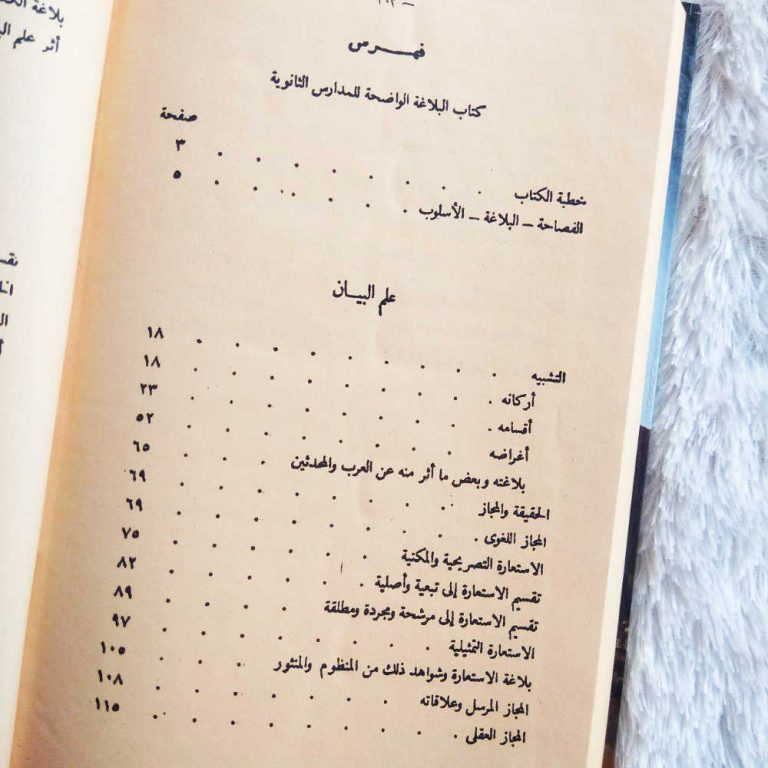 فهرس
كتاب البلاغة الواضحة للمدارس الثانوية
صفحة
خطبة الكتاب . . . . . . . . ٣
الفصاحة – البلاغة – الأسلوب . . . . . . ٥
علم البيان
التشبيه . . . . . . . . . ١٨
أركانه . . . . . . . . . ١٨
أقسامه . . . . . . . . . ٢٣
أغراضه . . . . . . . . . ٥٢
بلاغته وبعض ما أثر منه عن العرب والمحدثين . . . ٦٥
الحقيقة والمجاز . . . . . . . . ٦٩
المجاز اللغوى . . . . . . . . . ٦٩
الاستعارة التصريحية والمكنية . . . . . . ٧٥
تقسيم الاستعارة إلى تبعية وأصلية . . . . . . ٨٢
تقسيم الاستعارة إلى مرشحة ومجردة ومطلقة . . . . ٨٩
الاستعارة التمثيلية . . . . . . . . ٩٧
بلاغة الاستعارة وشواهد ذلك من المنظوم والمنثور . . . ١٠٥
المجاز المرسل وعلاقاته . . . . . . . ١٠٨
المجاز العقلى . . . . . . . . . ١١٥
بلاغة
أثر علم